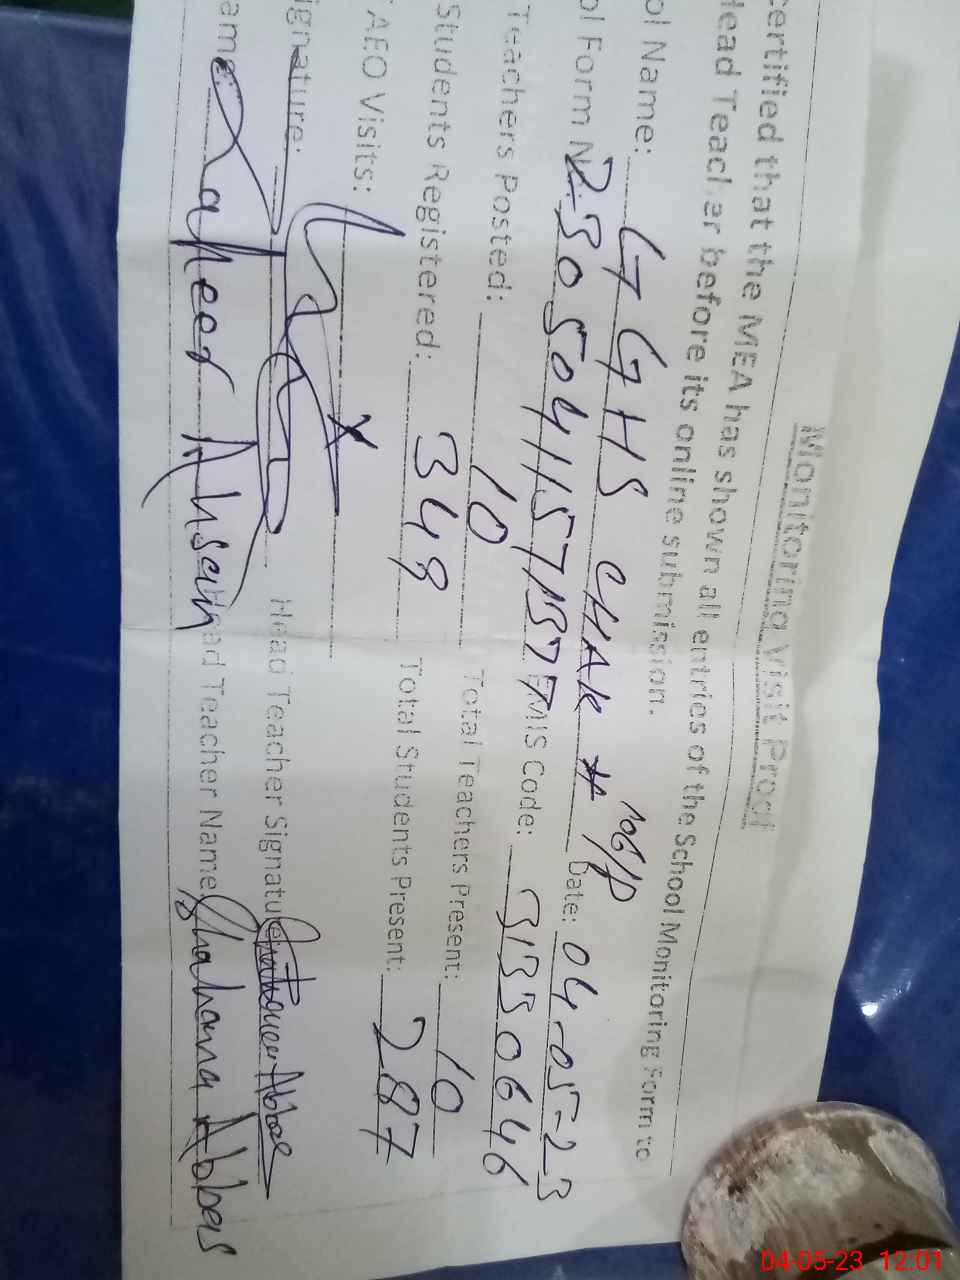 Monitoring Visit Proof
certified that the MEA has shown all entries of the School Monitoring Form to
Head Teacher before its online submission.
ol Name: GGHS CHAK # 106/P Date: 04-05-23
ol Form No: EMIS Code: 31330646
Teachers Posted: 10 Total Teachers Present: 10
Students Registered: 348 Total Students Present: 287
AEO Visits: X
ignature: Head Teacher Signature
ame: Zaheer Ahsan ad Teacher Name Shahana Abbas
04-05-23 12:01